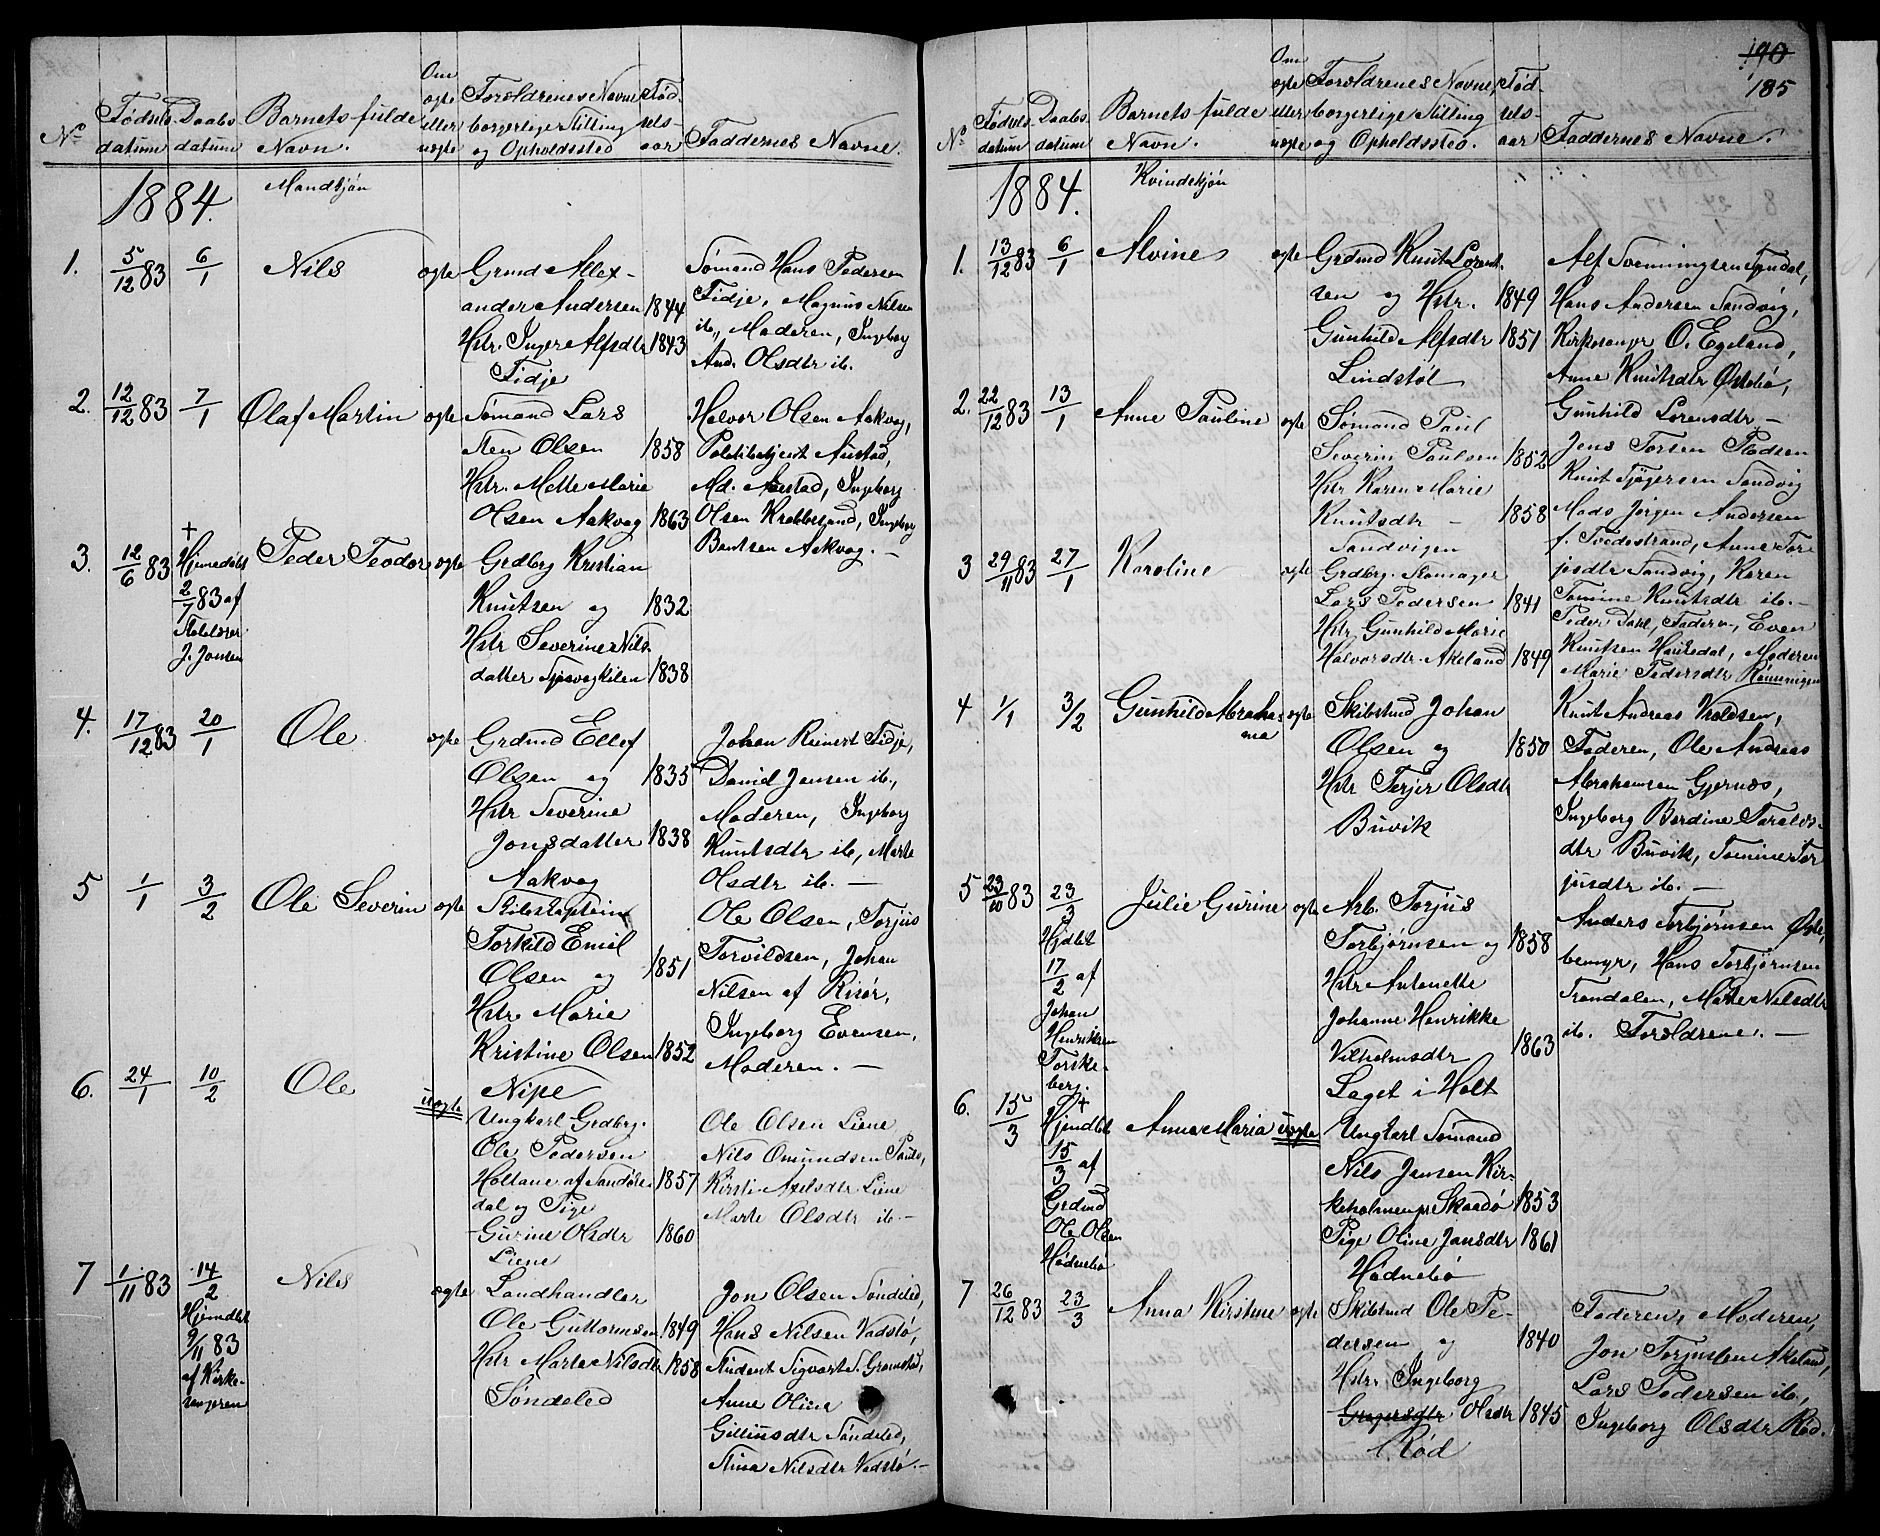 190
185
No
Fødsels-
datum
Daabs
datum
Barnets fulde
Navn.
Om
ægte
eller
uægte
Forældrenes Navne
borgerlige Stilling
og Opholdssted
Fød-
sels-
aar
Faddernes Navne.
1884.
Mandkjøn
1.
5/12 83
6/1
Nils
ægte
Grmd Allex-
ander Andersen 1844
Hstr. Inger Alfsdtr 1843
Fidje
Sømand Hans Pedersen
Fidje, Magnus Nilsen
ib., Moderen, Ingeborg
And. Olsdtr ib.
2.
12/12 83
7/1
Olaf Martin
ægte
Sømand Lars
Olsen 1858
Hstr. Mette Marie
Olsen Aakvag 1863
Halvor Olsen Aakvag,
Politibetjent Austad,
Md. Austad, Ingeborg
Olsen Krabbesund, Ingeborg
Bentsen Aakvag. —
3.
12/6 83
+
Hjemedøbt
2/7 83 af
Skolelærer
J. Jonsen
Peder Teodor
ægte
Grdbrg Kristian
Knutsen og 1832
Hstr Severine Nils-
datter 1838
4.
17/12 83
20/1
Ole
ægte
Grdmd Ellef
Olsen og 1835
Hstr Severine
Jonsdatter 1838
Aakvag
Johan Reinert Fidje,
David Jensen ib.,
Moderen, Ingeborg
Knutsdtr ib., Marte
Olsdtr ib. —
5
1/1
3/2
Ole Severin
ægte
Skibskaptein
Torkild Emil
Olsen og 1851
Hstr Marie
Kristine Olsen 1852
Nipe
Ole Olsen, Torjus
Torvildsen, Johan
Nilsen af Risør,
Ingeborg Evensen,
Moderen. —
6.
24/1
10/2
Ole
uægte
Ungkarl Grdbrg.
Ole Pedersen
Holtane af Sandøke-
dal og Pige
Gurine Olsdtr
Liene
1857
1860
Ole Olsen Liene
Nils Omundsen
Kirsti Axelsdtr Liene
Marte Olsdtr ib. —
7
1/11 83
14/2
Hjemdbt
9/11 83
af Kirke-
sangeren
Nils
ægte
Landhandler
Ole Guttormsen 1849
Hstr Marte Nilsdtr 1858
Søndeled
Jon Olsen Søndeled,
Hans Nilsen Vadstø,
Student Sigvart S. Grømstad,
Anne Oline
Gitliusdtr Søndeled,
Stina Nilsdtr Vadstø. —
No
Fødsels
datum
Daabs
datum
Barnets fulde
Navn.
Om
ægte
eller
uægte
Forældrenes Navne,
borgerlige Stilling
og Opholdssted.
Fød-
sels-
aar
Faddernes Navne.
1884.
Kvindekjøn
1.
13/12 83
6/1
Alvine
ægte
Grdmd Knut Lorent-
sen og Hstr. 1849
Gunhild Alfsdtr 1851
Lindstøl
Alf Svenningsen Lyndal,
Hans Andersen Sandvig,
Kirkesanger O. Egeland,
Anne Knutsdtr Østebø,
Gunhild Lorensdtr —
2.
22/12 83
13/1
Anne Pauline
ægte
Sømand Paul
Severin Paulsen 1852
Hstr Karen Marie
Knutsdtr — 1858
Sandvigen
Jens Torsen
Knut Tjøgersen Sandvig
Mads Jørgen Andersen
f. Tvedestrand, Anne Tor-
jusdtr Sandvig, Karen
Tomine Knutsdtr ib. —
3
29/11 83
27/1
Karoline
ægte
Grdbrg. Skomager
Lars Pedersen 1841
Hstr Gunhild Marie
Halvorsdtr. Akeland 1849
Peder Dahl, Faderen, Even
Knutsen Haukedal, Moderen
Marie Pedersdtr Rønningen
4
1/1
3/2
Gunhild Abraha-
ma
ægte
Skibstmd Johan
Olsen og 1850
Hstr Terjer Olsdtr
Buvik
Knut Andreas Vroldsen,
Faderen, Ole Andreas
Abrahamsen Gjernæs,
Ingeborg Berdine Tarals-
dtr Buvik, Tomine Tor
jusdtr ib. —
5
23/10 83
23/3
Hjdbt
17/2 af
Johan
Henriksen
Torske-
berg.
Julie Gurine
ægte
Arb. Torjus
Torbjørnsen og 1858
Hstr Antonette
Johanne Henrikke
Vilhelmsdtr 1863
Laget i Holt
Anders Torbjørnsen Øste,
bemyr, Hans Torbjørnsen
Trondalen, Marte Nilsdtr
ib. Forældrene. —
6.
15/3
+
Hjemdbt
15/3 af
Grdmd
Ole Olsen
Hødnebø
Anna Maria
uægte
Ungkarl Sømand
Nils Jensen Kir-
keholmen pr Skaadø 1853
Pige Oline Jansdtr 1861
Hødnebø
7
26/12 83
23/3
Anna Kirstine
ægte
Skibstmd Ole Pe-
dersen og 1840
Hstr. Ingeborg
Gregersdtr Olsdtr 1845
Rød
Faderen, Moderen,
Jon Torjussen Akeland,
Lars Pedersen ib.,
Ingeborg Olsdtr Rød.